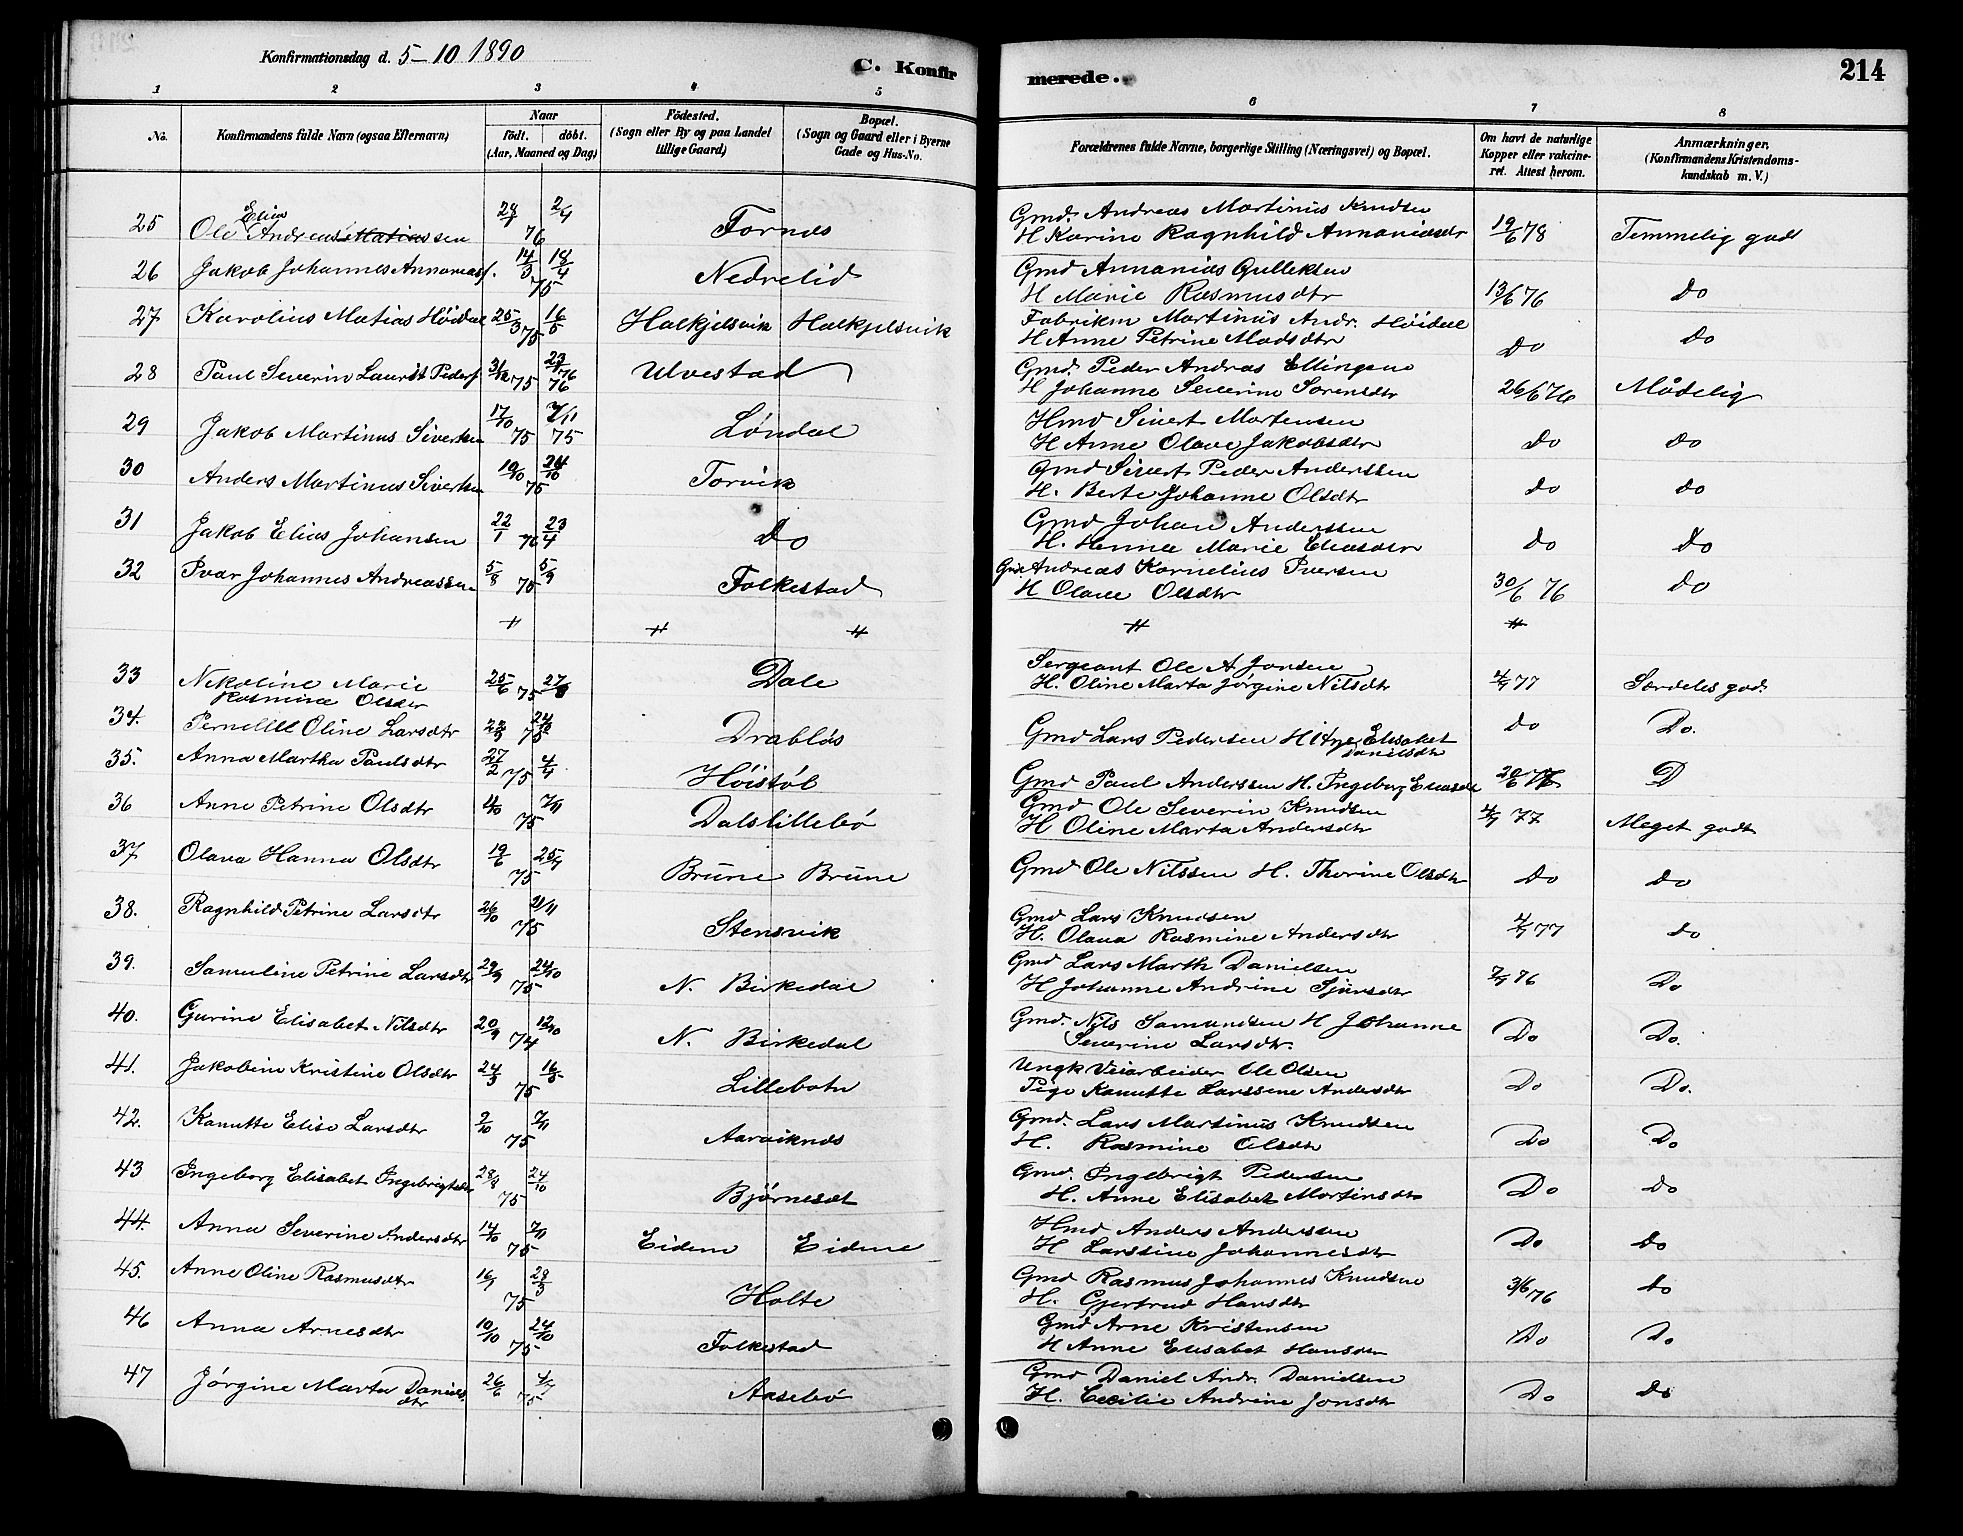 Konfirmationsdag d. 5-10 1890
C. Konfirmerede.
214
1 2 3 4 5 6 7 8
No.
Konfirmandens fulde Navn (ogsaa Efternavn)
Naar
födt. döbt.
(Aar, Maaned og Dag)
Födested.
(Sogn eller By og paa Landet
tillige Gaard)
Bopæl.
(Sogn og Gaard eller i Byerne
Gade og Hus-No.
Forældrenes fulde Navne, borgerlige Stilling (Næringsvei) og Bopæl.
Om havt de naturlige
Kopper eller vakcine-
ret. Attest herom.
Anmærkninger,
(Konfirmandens Kristendoms-
kundskab m. V.)
25 Ole Elias Andreas Matiassen 76 2/4 Fornes Gmd. Andreas Martinus Knudsen
H Karine Ragnhild Annaniasdtr 19/6 78 Temmelig godt
26 Jakob Johannes Annaniass. 14/3 18/4 75 Nedrelid Gmd Annanias Gulleksen
H Marie Rasmusdtr 13/6 76 do
27 Karolius Matias Höidal 25/3 16/5 75 Halkjelsvik Halkjelsvik Fabrikm Martinus Andr. Höidal
H Anne Petrine Madsdtr do do
28 Paul Severin Laurit Peders 31/12 75 23/1 76 Ulvestad Gmd. Peder Andras Ellingsen
H Johanne Severine Sorensdtr 26/6 76 Mådelig
29 Jakob Martinus Sivertsen 17/10 75 7/11 75 Løndal Hmd Sivert Mortensen
H Anne Olave Jakobsdtr do do
30 Anders Martinus Sivertsen 19/10 24/10 75 Torvik Gmd Sivert Peder Anderssen
H. Berte Johanne Olsdtr do do
31 Jakob Elias Johansen 22/1 76 23/4 do Gmd Johan Anderssen
H. Hanna Marie Eliasdtr do do
32 Ivar Johannes Andreassen 5/8 75 5/9 Folkestad Gmd. Andreas Kornelius Iversen
H Olave Olsdtr 30/6 76 do
" " " " "
33 Nikoline Marie
Rasmine Olsdtr 25/6 75 27/8 Dale Sergeant Ole A Jonsen
H. Oline Marta Jørgine Nilsdtr 4/7 77 Særdeles god.
34. Pernille Oline Larsdtr 75 Drabløs Gmd Lars Pedersen H Elisabet
Danielsdtr do Do.
35. Anna Martha Paulsdtr 27/2 75 4/4 Høistøl Gmd Paul Anderssen H. Ingeborg Eliasdtr 20/6 77 D
36 Anne Petrine Olsdtr 4/10 7/11 75 Dalslillebø Gmd Ole Severin Knudsen
H Oline Marta Andersdtr 4/7 77 Meget godt
37 Olava Hanna Olsdtr 19/6 25/7 75 Brune Brune Gmd Ole Nilssen H. Thorine Olsdtr do do
38. Ragnhild Petrine Larsdtr 26/10 21/11 75 Stensvik Gmd Lars Knudsen
H. Olava Rasmine Andersdtr 4/7 77 do
39. Samuline Petrine Larsdtr 29/9 24/10 75 N. Birkedal Gmd Lars Marth Danielsen
H Johanne Andrine Sjursdtr 7/7 76 Do
40. Gurine Elisabet Nilsdtr 20/9 12/10 74 N. Birkedal Gmd. Nils Samundsen H Johanne
Severine Larsdtr. Do Do.
41. Jakobine Kristine Olsdtr 24/3 16/5 75 Lillebotn Ungk Veiarbeider Ole Olsen
Pige Kanutte Larssene Andersdtr Do Do.
42. Kanutte Elise Larsdtr 2/10 7/11 75 Aarviknes Gmd. Lars Martinus Knudsen
H. Rasmine Olsdtr Do Do
43 Ingeborg Elisabet Ingebrigtsdtr 28/8 24/10 75 Bjørneset Gmd. Ingebrigt Pedersen
H. Anne Elisabet Martinsdtr Do do
44. Anna Severine Andersdtr 14/10 7/11 75 Eidem Eidene Hmd Anders Anderssen
H Larssine Johannesdtr Do do
45. Anne Oline Rasmusdtr 16/1 28/3 75 Holte Gmd Rasmus Johannes Knudsen
H. Gjertrud Hansdtr 3/6 76 do
46 Anna Arnesdtr 10/10 24/10 75 Folkestad Gmd Arne Kristensen
H Anne Elisabet Hansdtr Do Do
47 Jørgine Marta Daniels
dtr 26/6 4/7 75 Aasebø Gmd Daniel Andr. Danielsen
H. Cecilie Andrine Jonsdtr Do do